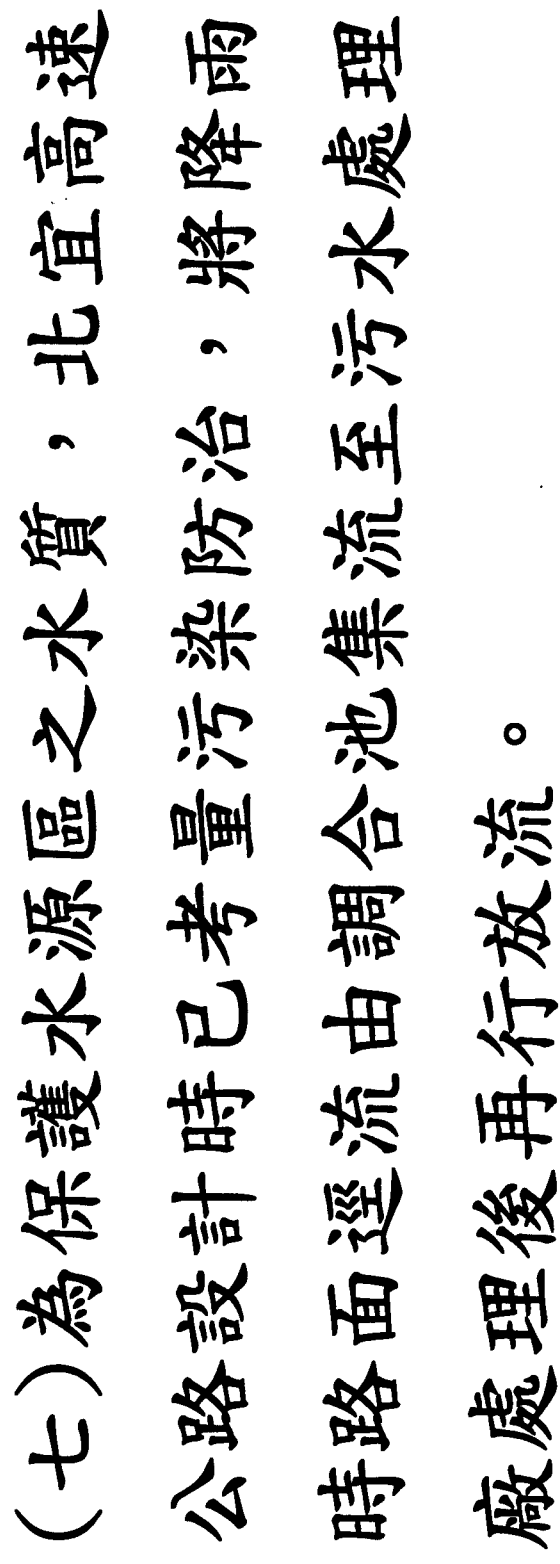 (七)為保護水源區之水質，北宜高速
公路設計時已考量污染防治，將降雨
時路面逕流由調合池集流至污水處理
廠處理後再行放流。